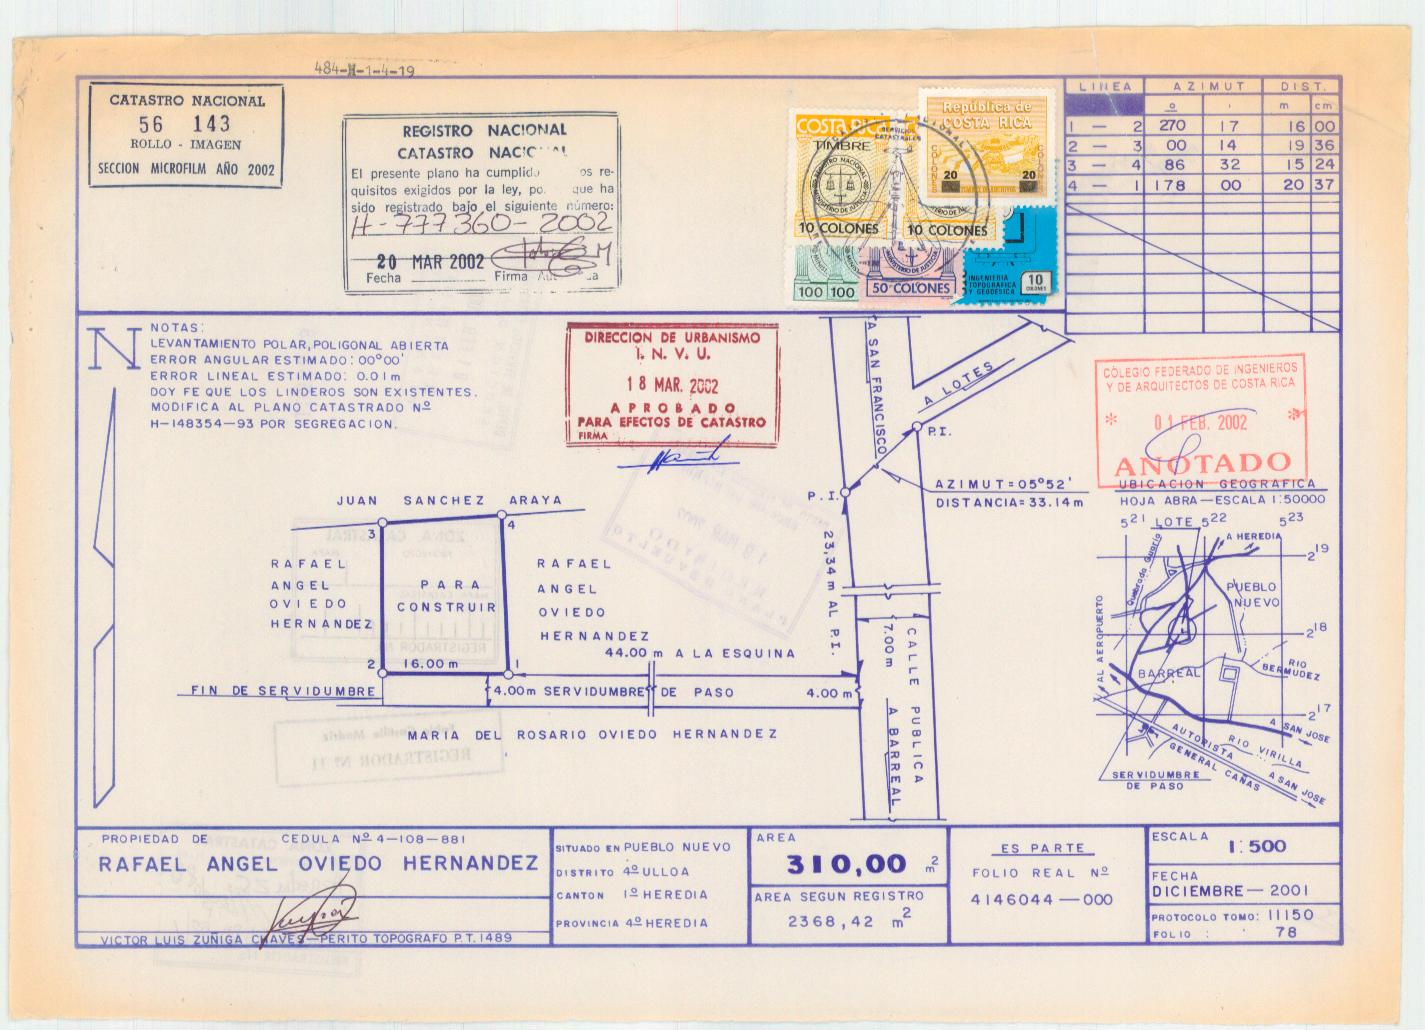 484-H-1-4-19
CATASTRO NACIONAL
56 143
ROLLO - IMAGEN
SECCION MICROFILM AÑO 2002
REGISTRO NACIONAL
CATASTRO NACIONAL
El presente plano ha cumplido os re-
quisitos exigidos por la ley, po. que ha
sido registrado bajo el siguiente número:
H-777360-2002
20 MAR 2002
Fecha Firma
COSTA RICA
TIMBRE
10 COLONES
10 COLONES
República de
COSTA RICA
COLONES
20 20
100 100
50 COLONES
INGENIERIA
TOPOGRAFICA
Y GEODESICA
10
COLONES
LINEA AZIMUT DIST.
o ' m cm
1 — 2 270 17 16 00
2 — 3 00 14 19 36
3 — 4 86 32 15 24
4 — 1 178 00 20 37
N
NOTAS:
LEVANTAMIENTO POLAR, POLIGONAL ABIERTA
ERROR ANGULAR ESTIMADO: 00°00'
ERROR LINEAL ESTIMADO: 0.01m
DOY FE QUE LOS LINDEROS SON EXISTENTES.
MODIFICA AL PLANO CATASTRADO Nº
H-148354-93 POR SEGREGACION.
DIRECCION DE URBANISMO
I. N. V. U.
18 MAR. 2002
APROBADO
PARA EFECTOS DE CATASTRO
FIRMA
A SAN FRANCISCO
A LOTES
P.I.
P.I.
AZIMUT=05°52'
DISTANCIA=33.14m
23,34 m AL P.I.
7.00m
CALLE PUBLICA
A BARREAL
COLEGIO FEDERADO DE INGENIEROS
Y DE ARQUITECTOS DE COSTA RICA
* 01 FEB. 2002 *
ANOTADO
JUAN SANCHEZ ARAYA
3
4
RAFAEL
ANGEL
OVIEDO
HERNANDEZ
PARA
CONSTRUIR
RAFAEL
ANGEL
OVIEDO
HERNANDEZ
44.00 m A LA ESQUINA
2
16.00 m
1
FIN DE SERVIDUMBRE
4.00m SERVIDUMBRE DE PASO
4.00 m
MARIA DEL ROSARIO OVIEDO HERNANDEZ
UBICACION GEOGRAFICA
HOJA ABRA—ESCALA 1:50000
521 LOTE 522 523
A HEREDIA
219
Quebrada Guaria
PUEBLO
NUEVO
218
AL AEROPUERTO
BARREAL
RIO
BERMUDEZ
217
A SAN JOSE
AUTOPISTA
GENERAL CAÑAS
RIO VIRILLA
A SAN JOSE
SERVIDUMBRE
DE PASO
PROPIEDAD DE CEDULA Nº 4-108-881
RAFAEL ANGEL OVIEDO HERNANDEZ
VICTOR LUIS ZUÑIGA CHAVES—PERITO TOPOGRAFO P.T. 1489
SITUADO EN PUEBLO NUEVO
DISTRITO 4º ULLOA
CANTON 1º HEREDIA
PROVINCIA 4º HEREDIA
AREA
310,00 m2
AREA SEGUN REGISTRO
2368,42 m2
ES PARTE
FOLIO REAL Nº
4146044—000
ESCALA
1:500
FECHA
DICIEMBRE—2001
PROTOCOLO TOMO: 11150
FOLIO : 78